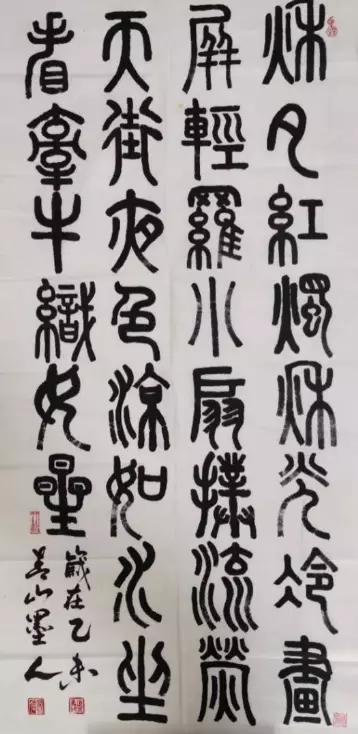 秋夕紅燭秋光冷畫
屏輕羅小扇撲流螢
天街夜色涼如水坐
看牽牛織女星
歲在乙未
山墨人